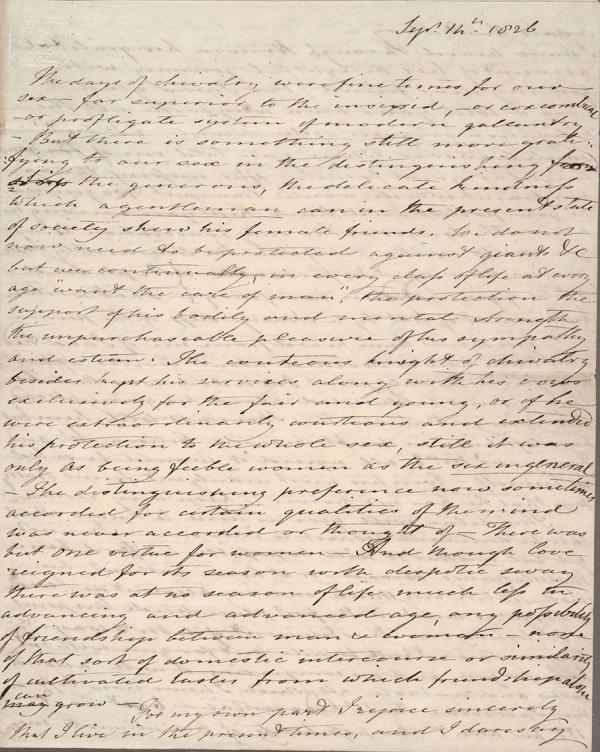 Sepr. 14th. 1826
The days of chivalry were fine times for our
sex – far superior to the insipid, – or coxcombical
– or profligate system of modern gallantry
– But there is something still more grati-
:fying to our sex in the distinguishing
the generous, the delicate kindness
which a gentleman can in the present state
of society shew his female friends. We do not
now need to be protected against giants &c
but we continually, in every class of life at every
age "want the care of man", the protection the
support of his bodily and mental strength
the unpurchaseable pleasure of his sympathy
and esteem. The courteous knight of chivalry
besides kept his services along with his vows
exclusively for the fair and young, or if he
were extraordinarily courteous and extended
his protection to the whole sex, still it was
only as being feeble women as the sex in general
– The distinguishing preference now sometimes
accorded for certain qualities of the mind
was never accorded or thought of – There was
but one virtue for women – And though love
reigned for its season with despotic sway
there was at no season of life much less in
advancing and advanced age, any possibility
of friendship between man & woman – none
of that sort of domestic intercourse or similarity
of cultivated tastes from which friendship alone
can
may grow – For my own part I rejoice sincerely
that I live in the present times, and I daresay